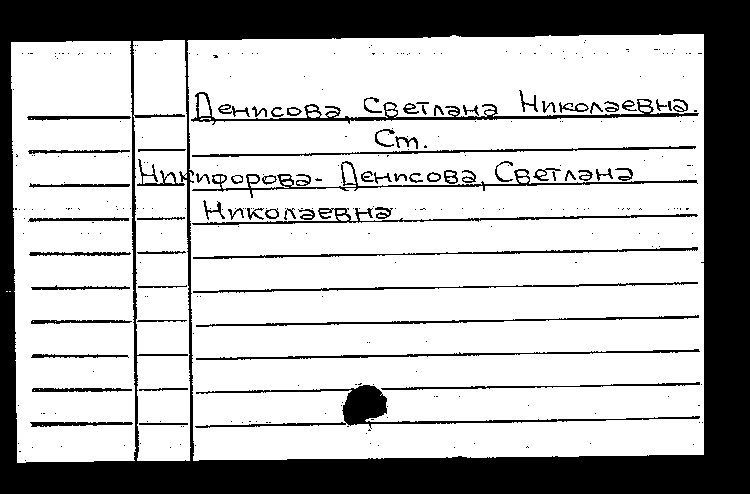 Денисова, Светлана Николаевна.
Ст.
Никифорова- Денисова, Светлана
Николаевна.